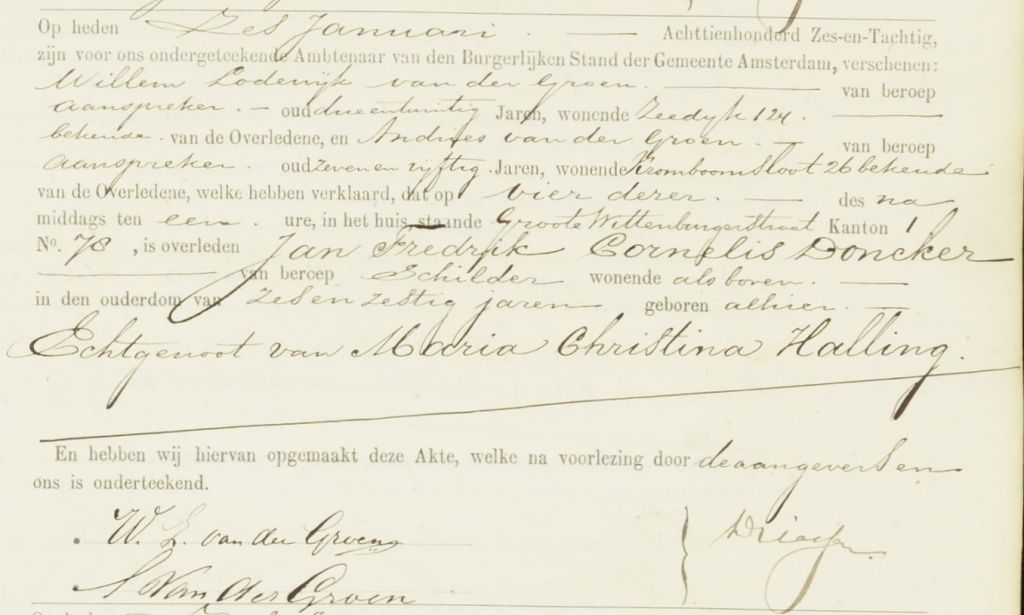 Op heden Zes Januari. Achttienhonderd Zes-en-Tachtig,
zijn voor ons ondergeteekende Ambtenaar van den Burgerlijken Stand der Gemeente Amsterdam, verschenen:
Willem Lodewijk van der Groen. van beroep
aanspreker. oud drieentwintig Jaren, wonende Zeedyk 124.
bekende. van de Overledene, en Andries van der Groen. van beroep
aanspreker. oud zeven en vijftig. Jaren, wonende Kromboomsloot 26 bekende
van de Overledene, welke hebben verklaard, dat op vier dezer. des na
middags ten een. ure, in het huis staande Groote Wittenburgerstraat Kanton 1
No. 78, is overleden Jan Fredrik Cornelis Doncker
van beroep Schilder wonende als boven.
in den ouderdom van zes en zestig jaren geboren alhier.
Echtgenoot van Maria Christina Halling.
En hebben wij hiervan opgemaakt deze Akte, welke na voorlezing door de aangevers en
ons is onderteekend.
W. L. van der Groen
A Van der Groen